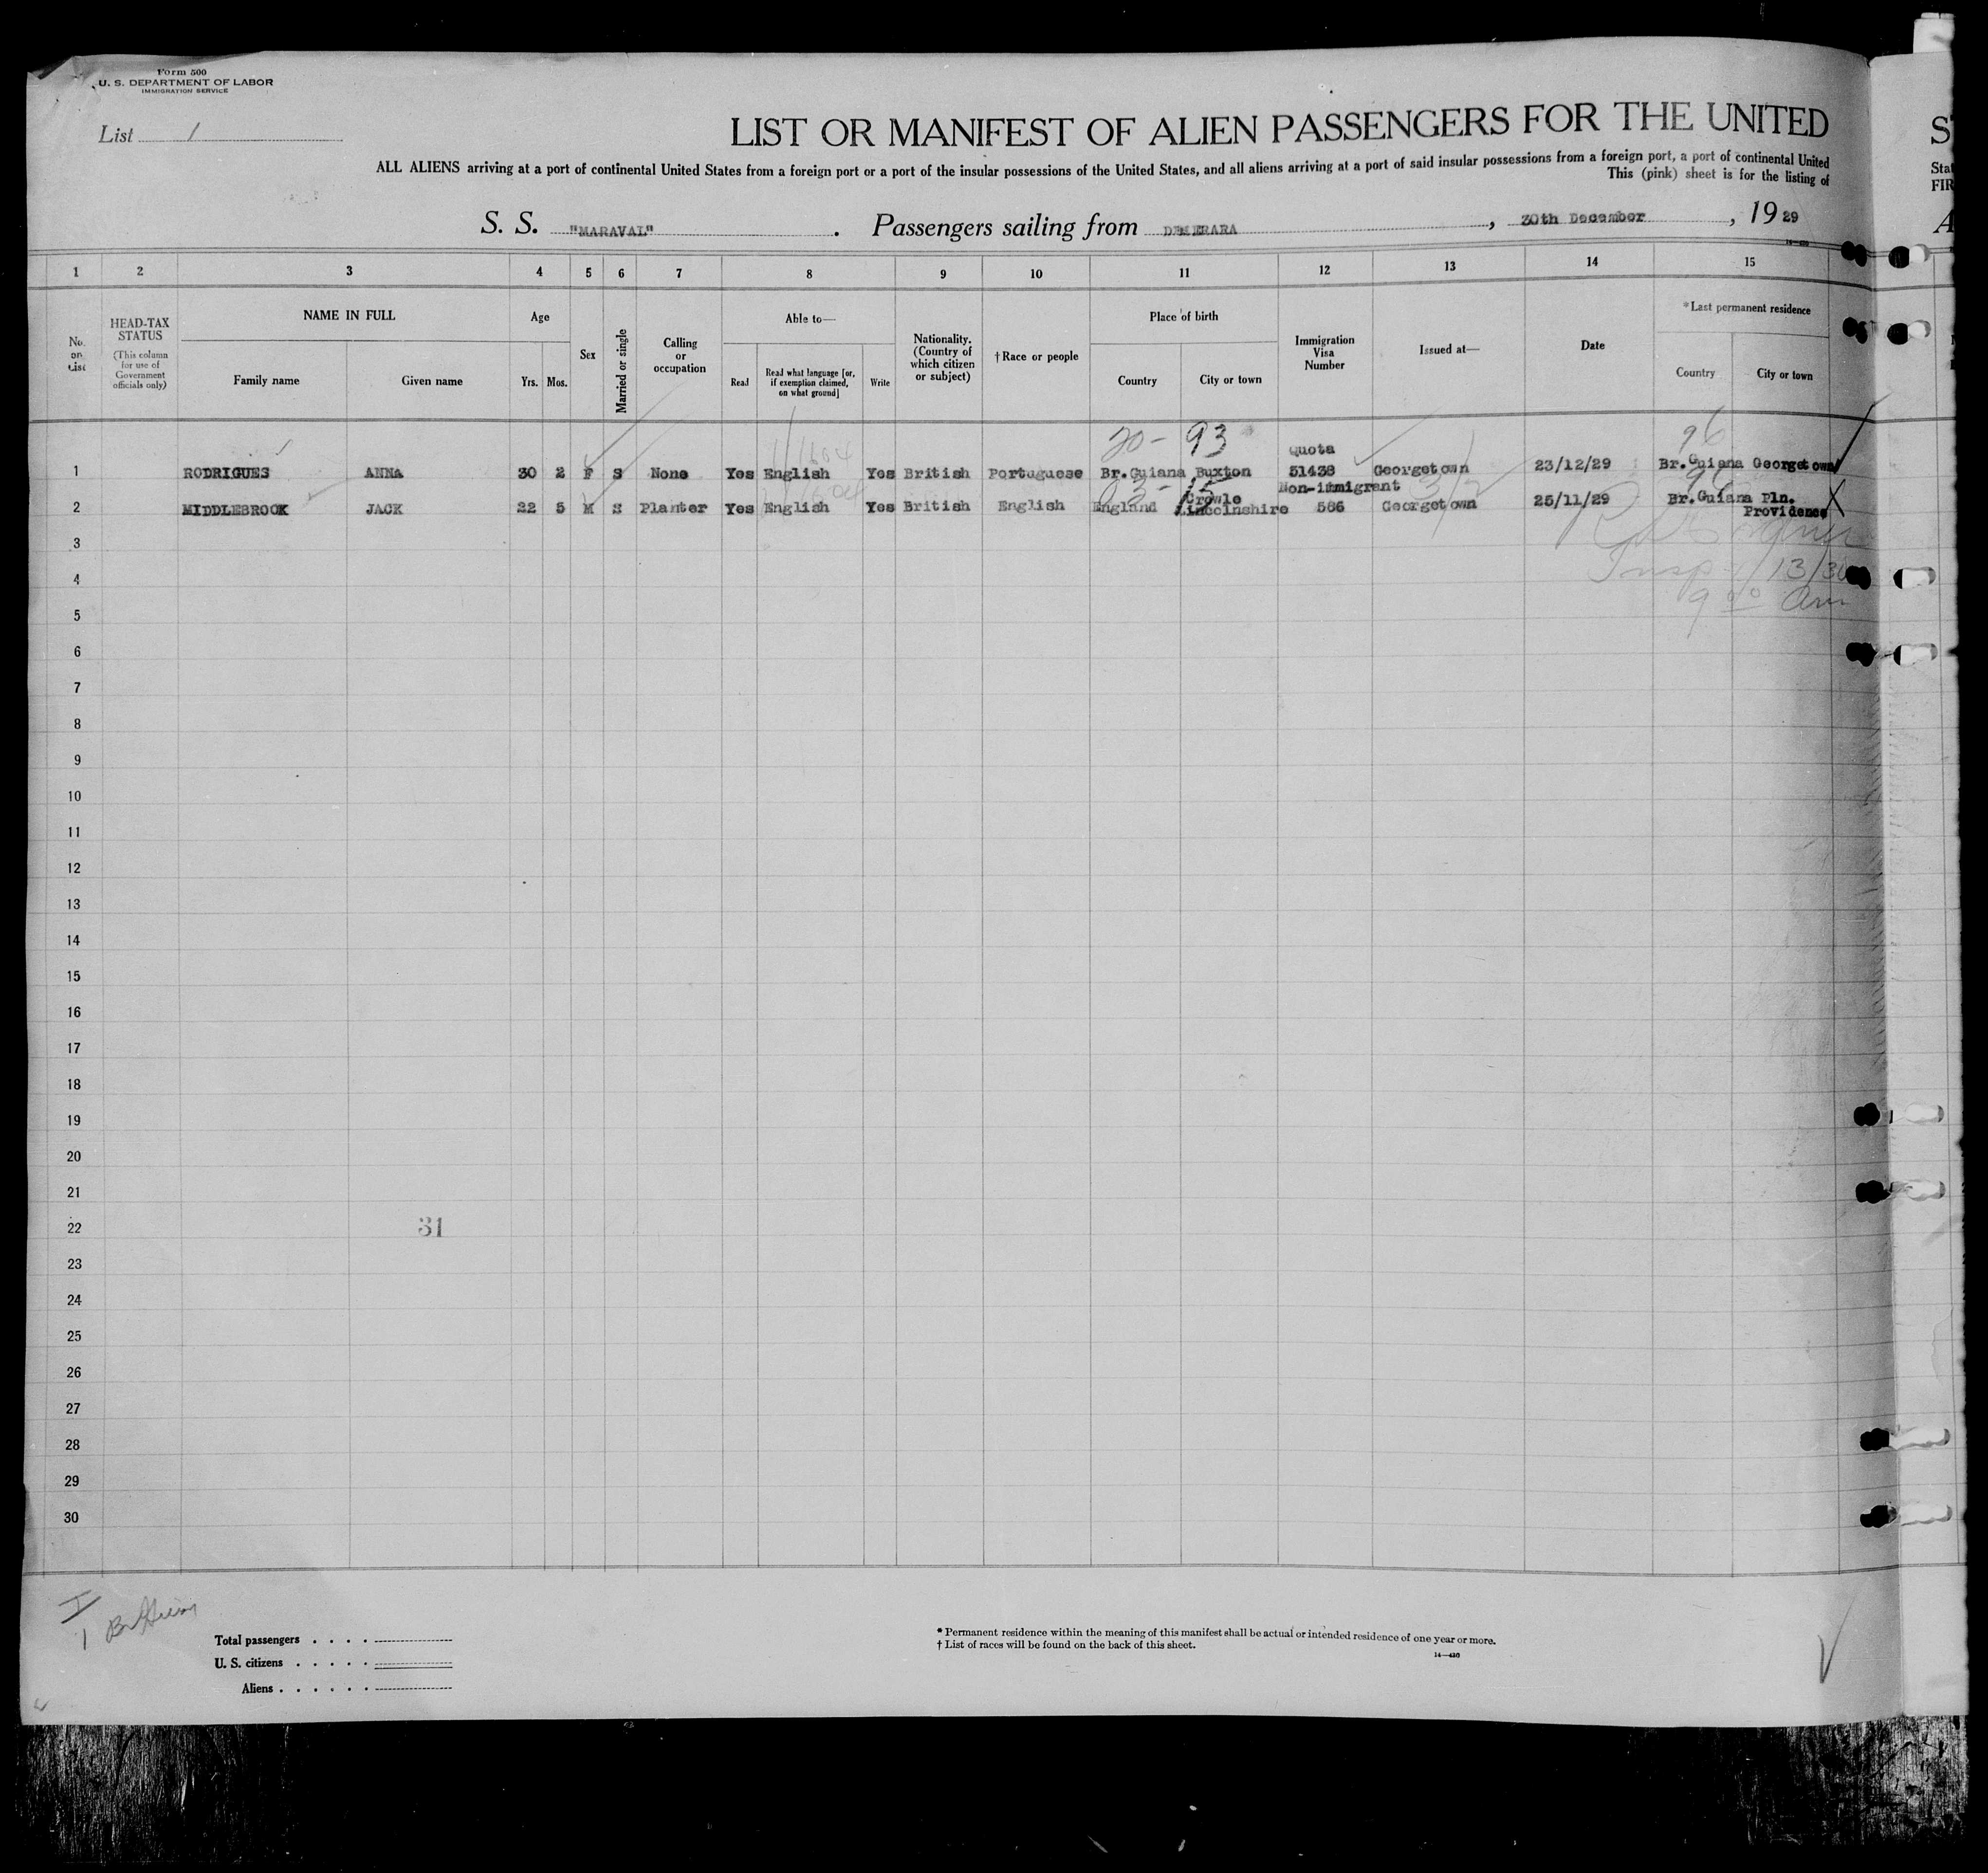 Form 500
U. S. DEPARTMENT OF LABOR
IMMIGRATION SERVICE
List 1
LIST OR MANIFEST OF ALIEN PASSENGERS FOR THE UNITED
ALL ALIENS arriving at a port of continental United States from a foreign port or a port of the insular possessions of the United States, and all aliens arriving at a port of said insular possessions from a foreign port, a port of continental United
This (pink) sheet is for the listing of
S. S. "MARAVAL". Passengers sailing from DEMERARA, 30th December, 1929
S
Stat
FIR
A
1 2 3 4 5 6 7 8 9 10 11 12 13 14 15
No. on List
HEAD-TAX STATUS
(This column for use of Government officials only)
NAME IN FULL
Family name
Given name
Age
Yrs. Mos.
Sex
Married or single
Calling or occupation
Able to—
Read
Read what language [or, if exemption claimed, on what ground]
Write
Nationality. (Country of which citizen or subject)
† Race or people
Place of birth
Country
City or town
Immigration Visa Number
Issued at—
Date
*Last permanent residence
Country
City or town
20- 93
96
Quota
1 RODRIGUES ANNA 30 2 F S None Yes English Yes British Portuguese Br.Guiana Buxton 51438 Georgetown 23/12/29 Br.Guiana Georgetown
03-15
96
Non-immigrant
Crowle
2 MIDDLEBROOK JACK 22 5 M S Planter Yes English Yes British English England Lincolnshire 586 Georgetown 25/11/29 Br.Guiana Pln.
Providence
3
Insp 1/13/30
4
9 00 am
5
6
7
8
9
10
11
12
13
14
15
16
17
18
19
20
21
22 31
23
24
25
26
27
28
29
30
Total passengers
U. S. citizens
Aliens
* Permanent residence within the meaning of this manifest shall be actual or intended residence of one year or more.
† List of races will be found on the back of this sheet.